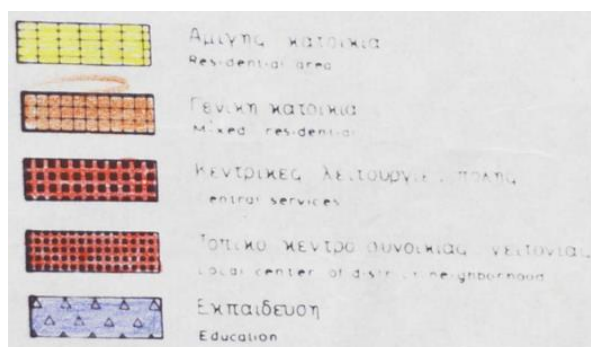 Αμιγης κατοικια
Residential area
Γενικη κατοικια
Mixed residential
Κεντρικες λειτουργιες πολης
Central services
Τοπικο κεντρο συνοικιας γειτονιας
Local center of district neighborhood
Εκπαιδευση
Education